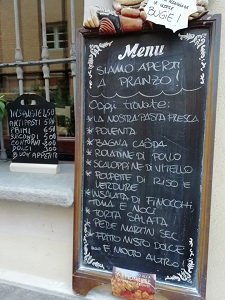 BUGIE!
Menu
SIAMO APERTI
A PRANZO!
Oggi trovate:
* LA NOSTRA PASTA FRESCA
* POLENTA
* BAGNA CAÔDA
* ROLATINE DI POLLO
* SCALOPPINE DI VITELLO
* POLPETTE DI RISO E
VERDURE
* INSALATA DI FINOCCHI,
TOMA E NOCI
* TORTA SALATA
* PERE MARTIN SEC
* FRITTO MISTO DOLCE
... E MOLTO ALTRO!
ANTIPASTI
PRIMI
SECONDI
CONTORNI
DOLCI
BUON APPETITO